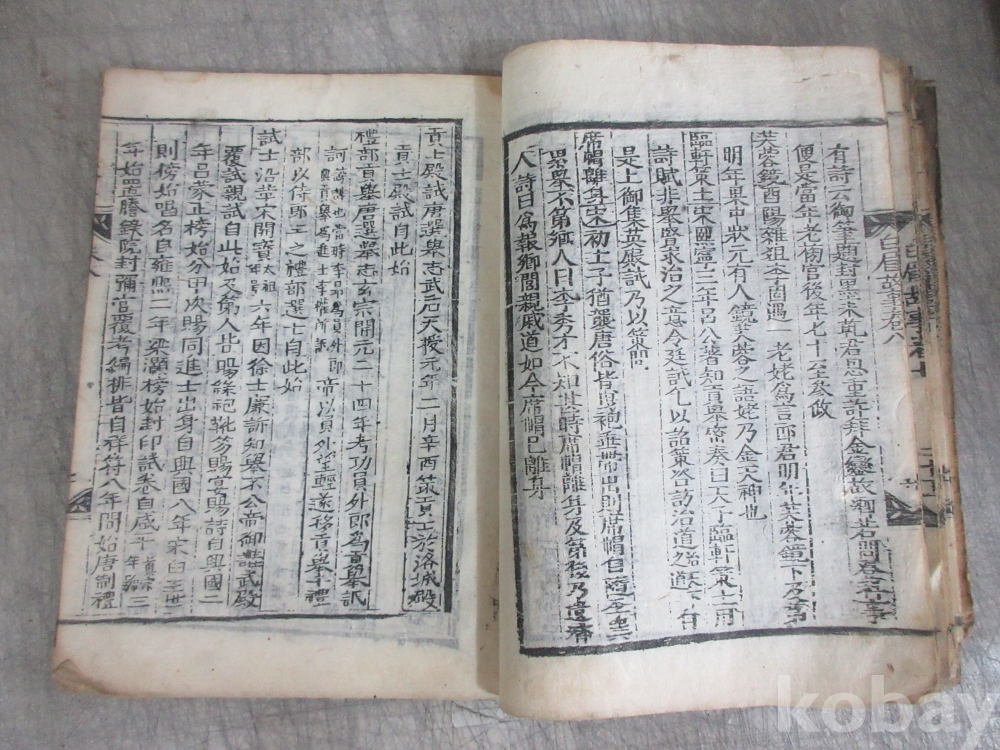 有詩云御筆題封墨未乾君恩重許拜金鑾故
便是當年老
後年七十至參政
芙蓉鏡酉陽雜俎李固遇一老姥爲言郎君明年芙蓉鏡下及第
明年果中狀元有人鏡芙蓉之語姥乃金天神也
臨軒策士宋國
二年呂公著知貢擧奏曰天子臨軒策士而
詩賦非擧賢求治之意令廷試乞以詔策咨訪治道
是上御集英殿試乃以策問
席帽離身宋初士子猶襲唐俗皆曳袍垂帶出則席帽自隨
累擧不第
人曰李秀才不知甚時席帽離身及第後乃遺
人詩曰爲報鄕閭親戚道如今席帽已離身
貢士殿試唐選擧志武后天授元年二月辛酉策貢士於洛城殿
貢士殿試自此始
禮部貢擧唐選擧志玄宗開元二十四年考功員外郎爲貢擧
訶
當時李昂爲員外郎
帝以員外望輕遂移貢擧於禮
部以侍郎主之禮部選士自此始
試士沿革宋開寶
六年因徐士廉訴知擧不公帝御講武殿
覆試親試自此始及第人皆賜綠袍靴笏賜宴賜詩自興國二
年呂蒙正榜始分甲次賜同進士出身自興國八年宋
則榜始唱名自雍熙二年梁顥榜始封印試卷自咸平
年始置謄錄院封彌官覆考編排皆自祥符八年間始唐制禮
白眉故事卷八
kobay